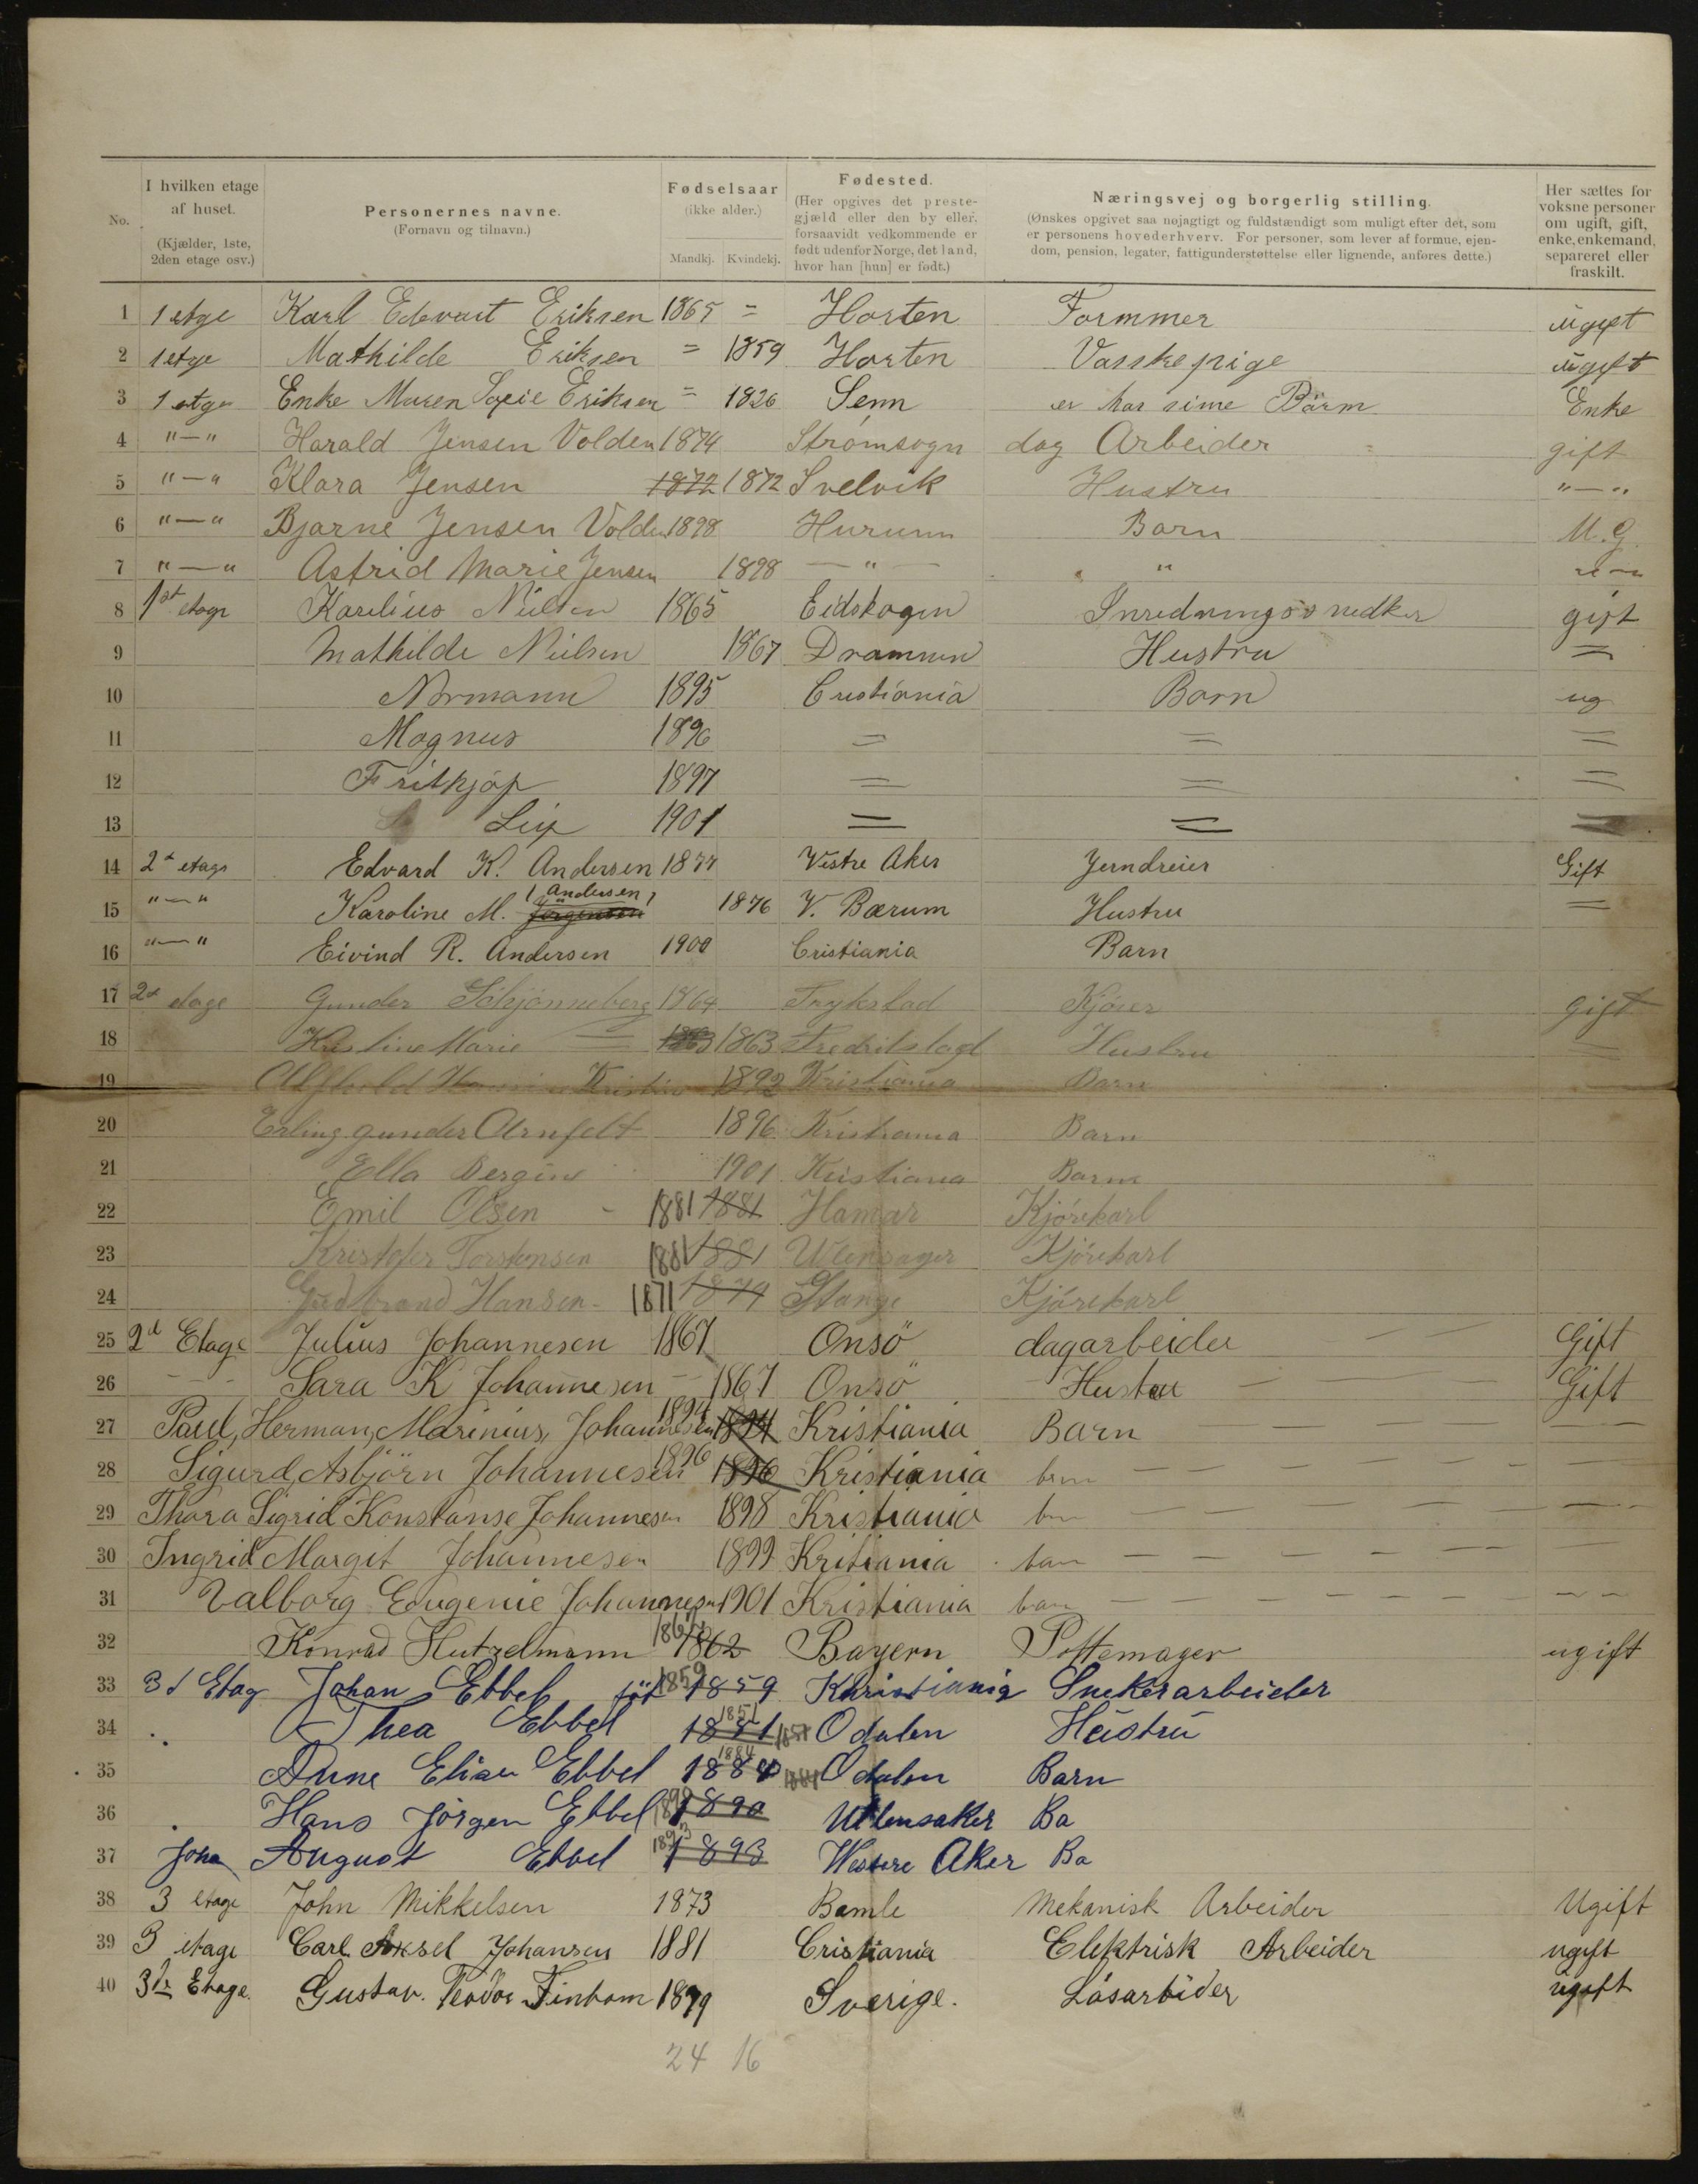 No. I hvilken etage af huset. (Kjælder, 1ste, 2den etage osv.) Personernes navne. (Fornavn og tilnavn.) Fødselsaar (ikke alder.) Mandkj. Kvindekj. Fødested. (Her opgives det prestegjæld eller den by eller, forsaavidt vedkommende er født udenfor Norge, det land, hvor han [hun] er født.) Næringsvej og borgerlig stilling. (Ønskes opgivet saa nøjagtigt og fuldstændigt som muligt efter det, som er personens hovederhverv. For personer, som lever af formue, ejendom, pension, legater, fattigunderstøttelse eller lignende, anføres dette.) Her sættes for voksne personer om ugift, gift, enke, enkemand, separeret eller fraskilt.
1 1 etge Karl Edevart Eriksen 1865 = Horten Formmer ugift
2 1 etge Mathilde Eriksen = 1859 Horten Vasskepige ugift
3 1 etge Enke Maren Sofie Eriksen = 1826 Sem er hos sine Börn Enke
4 "—" Harald Jensen Volden 1874 Strømsogn dag Arbeider gift
5 "—" Klara Jensen 1872 1872 Svelvik Hustru "—"
6 "—" Bjarne Jensen Volden 1898 Hurum Barn U.G.
7 "—" Astrid Marie Jensen 1898 — " — "
8 1st etage Karelius Nielsen 1865 Eidskogen Inredningssnedker gift
9 Mathilde Nielsen 1867 Drammen Hustru =
10 Normann 1895 Cristiania Barn ug
11 Magnus 1896 = = =
12 Frithjof 1897 = = =
13 Leif 1901 = =
14 2d etage Edvard K. Andersen 1877 Vestre Aker Jerndreier Gift
15 "—" Karoline M. Jørgensen (Andersen) 1876 V. Bærum Hustru =
16 "—" Eivind R. Andersen 1900 Cristiania Barn
17 2d etage Gunder Schjønneberg 1864 Trykstad Kjører gift
18 Kristine Marie = 1863 1863 Fredrikstad Hustru
19 Kristine 1892 Kristiania Barn
20 Erling Gunder Arnfelt 1896 Kristiania Barn
21 Ella Bergine 1901 Kristiania Barn
22 Emil Olsen 1881 1881 Hamar Kjørekarl
23 Kristofer Torstensen 1881 1881 Ulensager Kjørekarl
24 Gudbrand Hansen 1871 1871 Stange Kjørekarl
25 2d Etage Julius Johannesen 1867 Onsö dagarbeider — — Gift
26 - - - Sara K Johannesen — 1867 Onsö Hustru — — — Gift
27 Paul, Herman, Marinius, Johannesen 1894 1894 Kristiania Barn — —
28 Sigurd, Asbjörn Johannesen 1896 1896 Kristiania brn — —
29 Thora Sigrid Konstanse Johannesen 1898 Kristiania brn — —
30 Ingrid Margit Johannesen 1899 Kritiania barn — —
31 Valborg Eugenie Johannesen 1901 Kristiania barn — —
32 Konrad Hutzelmann 1862 1862 Bayern Pottemager ugift
33 3d Etag Johan Ebbel föt 1859 1859 Khristiania Snekerarbeider
34 Thea Ebbel 1851 1851 1851 Odalen Hustru
35 Anne Elise Ebbel 1884 1884 1884 Odalen Barn
36 Hans Jørgen Ebbel 1890 1890 Ullensaker Ba
37 Joha August Ebbel 1893 1893 Westre Aker Ba
38 3 etage John Mikkelsen 1873 Bamle Mekanisk Arbeider Ugift
39 3 etage Carl Aksel Johansen 1881 Cristiania Elektrisk Arbeider ugift
40 3de Etage. Gustav. Teodor Finbom 1879 Sverige. Låsarbider ugift
24 16